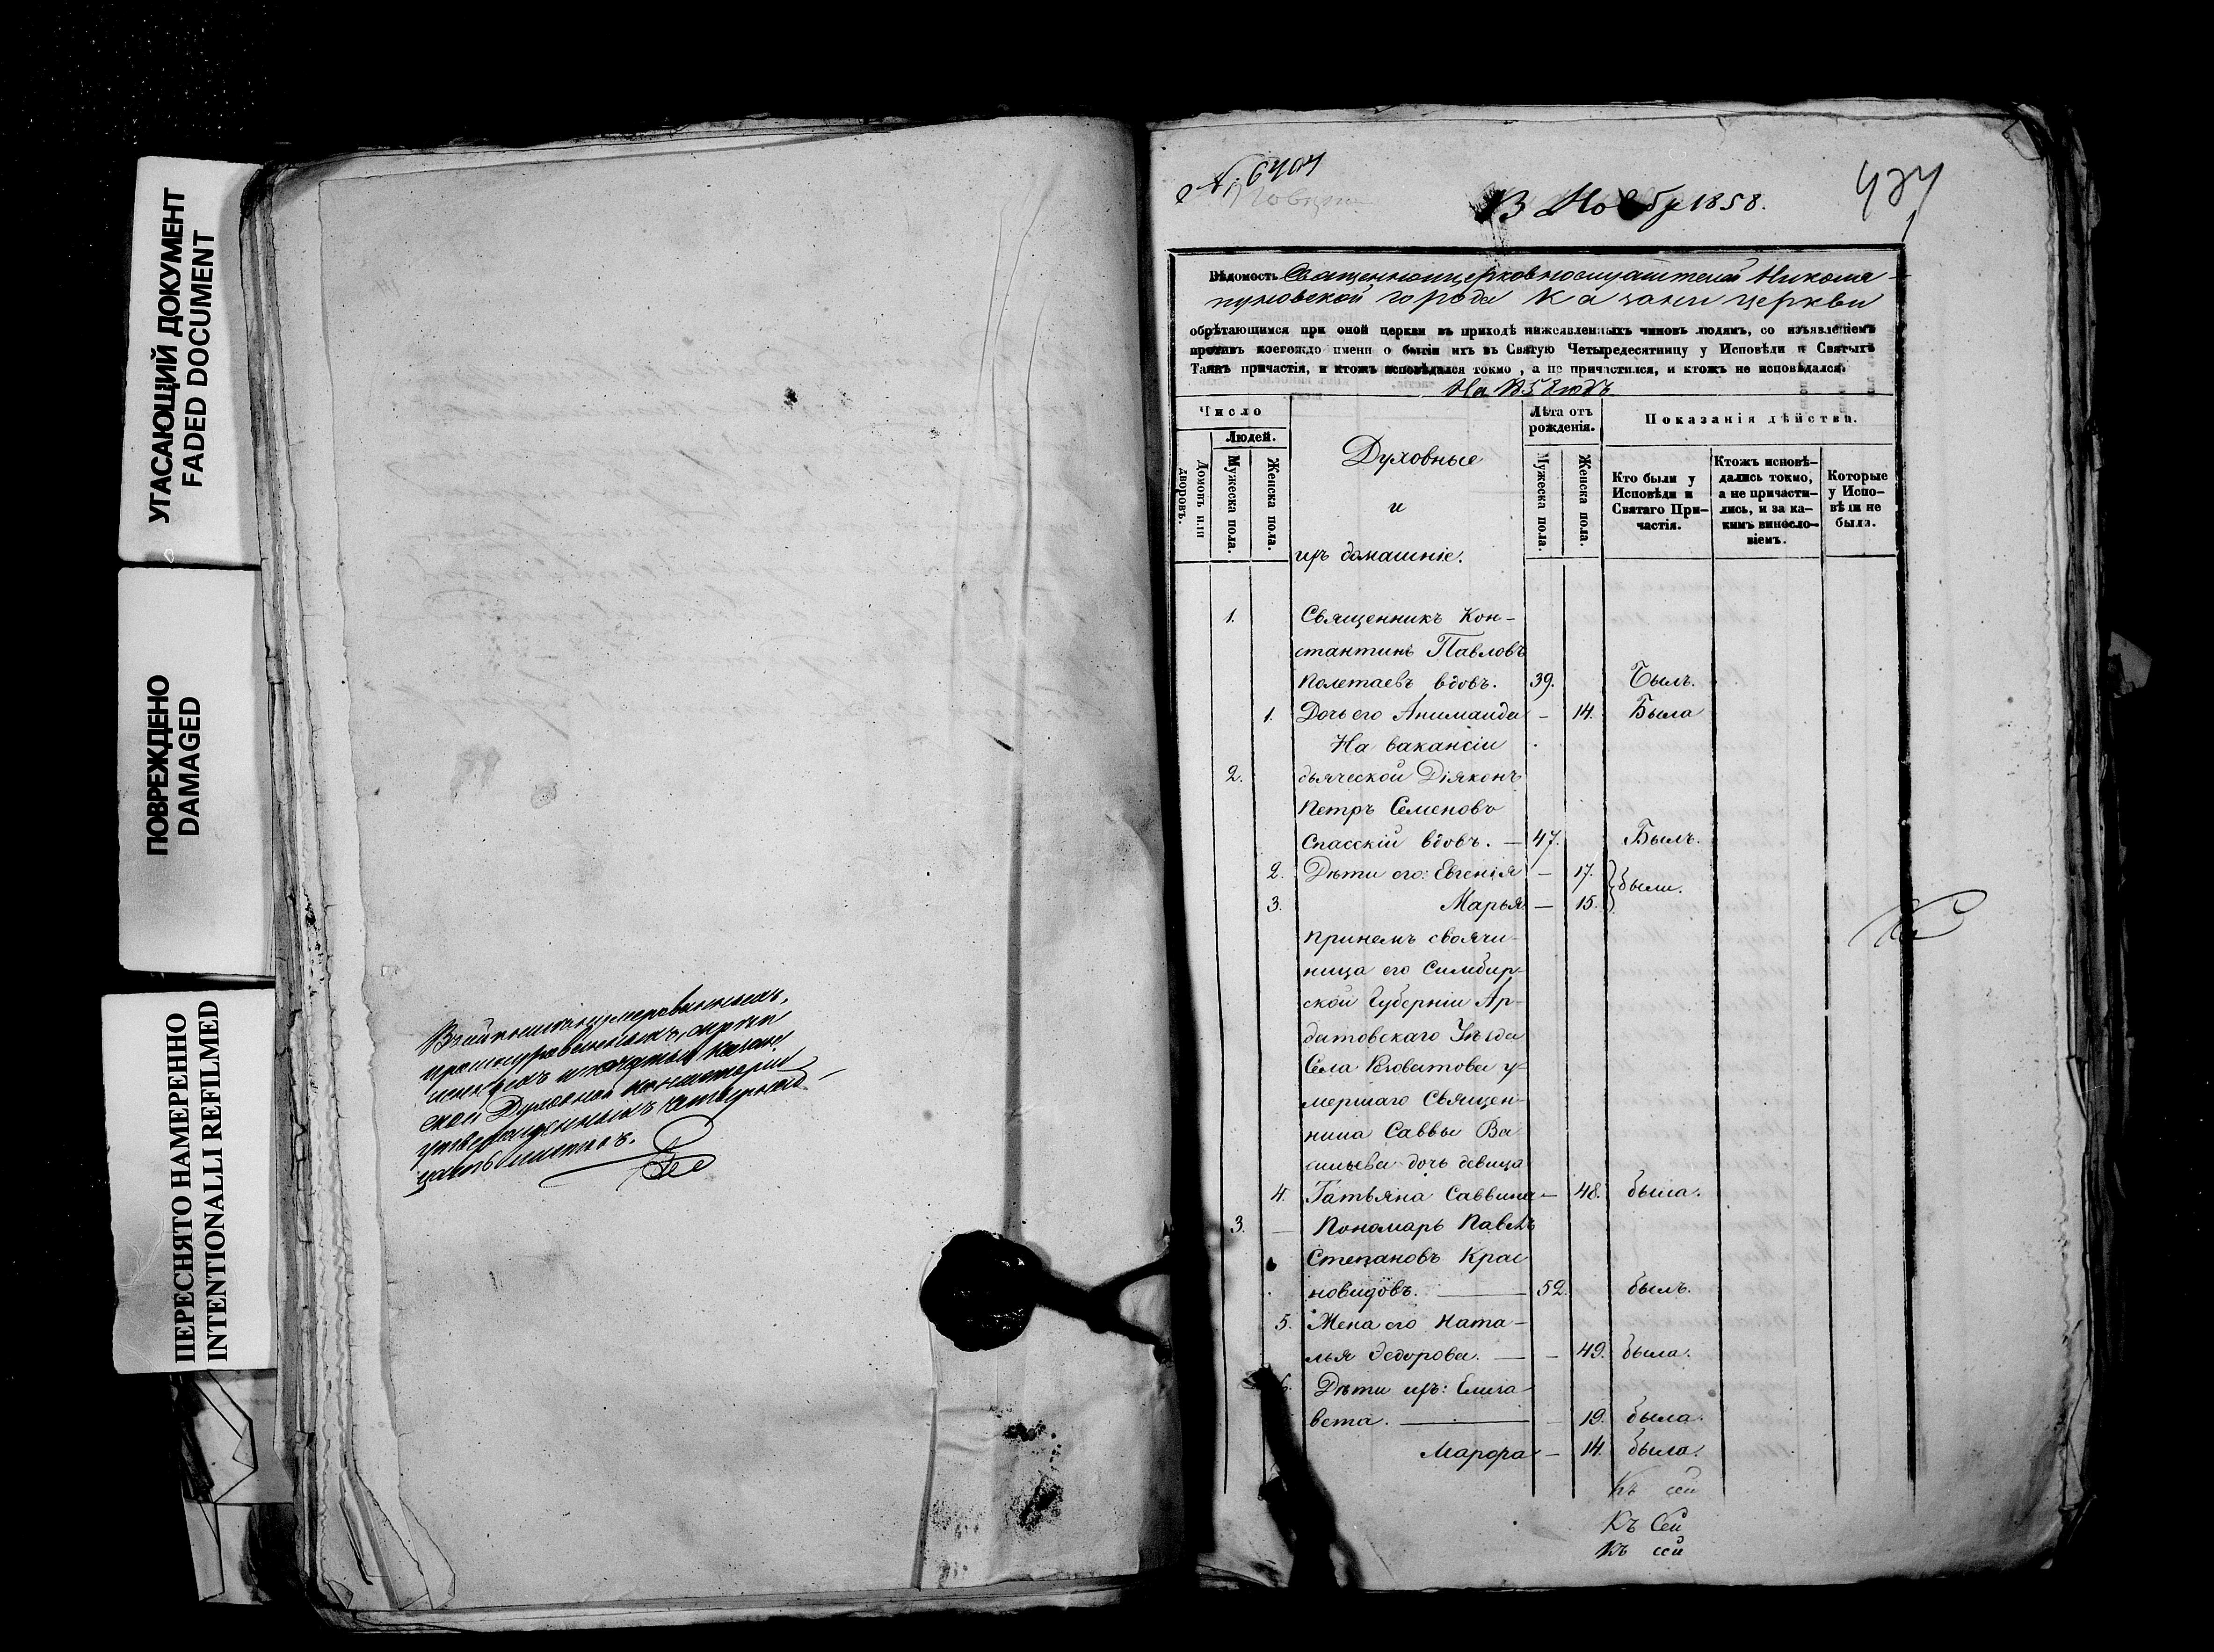 УГАСАЮЩИЙ ДОКУМЕНТ
FADED DOCUMENT
ПОВРЕЖДЕНО
DAMAGED
ПЕРЕСНЯТО НАМЕРЕННО
INTENTIONALLI REFILMED
ской Духовной Консисторіи
листовъ.
№ 6404
13 Ноябр 1858.
Вѣдомость Священноцерковнослужителей Николо-
пуновской города Казани церкви
обрѣтающимся при оной церкви въ приходѣ нижеявленныхъ чиновъ людямъ, со изъявленіемъ
противъ коегождо имени о бытіи ихъ въ Святую Четыредесятницу у Исповѣди и Святыхъ
Таинъ причастія, и ктожъ исповѣдался токмо, а не причастился, и ктожъ не исповѣдался.
На 1858 годъ
Число
Людей.
Домовъ или дворовъ.
Мужеска пола.
Женска пола.
Духовные
и
ихъ домашніе.
Лѣта отъ
рожденія.
Мужеска пола.
Женска пола.
Показанія дѣйства.
Кто были у
Исповѣди и
Святаго При-
частія.
Ктожъ исповѣ-
дались токмо,
а не причасти-
лись, и за ка-
кимъ виносло-
віемъ.
Которые
у Испо-
вѣди не
были.
1. Священникъ Кон-
стантинъ Павловъ
Полетаевъ вдовъ. 39. Былъ.
1. Дочь его Анимаида — 14. Была
На вакансіи
2. дьяческой Діяконъ
Петръ Семеновъ
Спасскій вдовъ. — 47. Былъ.
2. Дѣти его: Евгенія — 17. были.
3. Марья — 15.
При немъ своячи-
ница его Симбир-
ской Губерніи Ар-
датовскаго Уѣзда
Села у-
мершаго Священ-
ника Саввы Ва-
сильева дочь девица
4. Татьяна Саввина — 48. была.
3. — Пономарь Павелъ
Степановъ Крас
новидовъ. — 52. былъ.
5. Жена его Ната-
лья Федорова. — — 49. была.
6. Дѣти ихъ: Елиза-
вета. — 19. была.
Марфа — 14. была.
Къ сей
Къ Сей
Къ сей